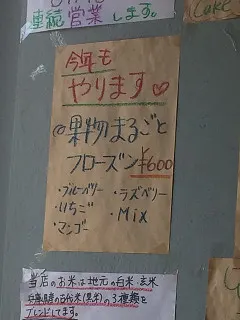 連続営業します。
Cake
今年も
やります♡
◎果物まるごと
フローズン¥600
・ブルーベリー ・ラズベリー
・いちご ・Mix
・マンゴー
当店のお米は地元の白米・玄米
の3種類を
ブレンドしてます。